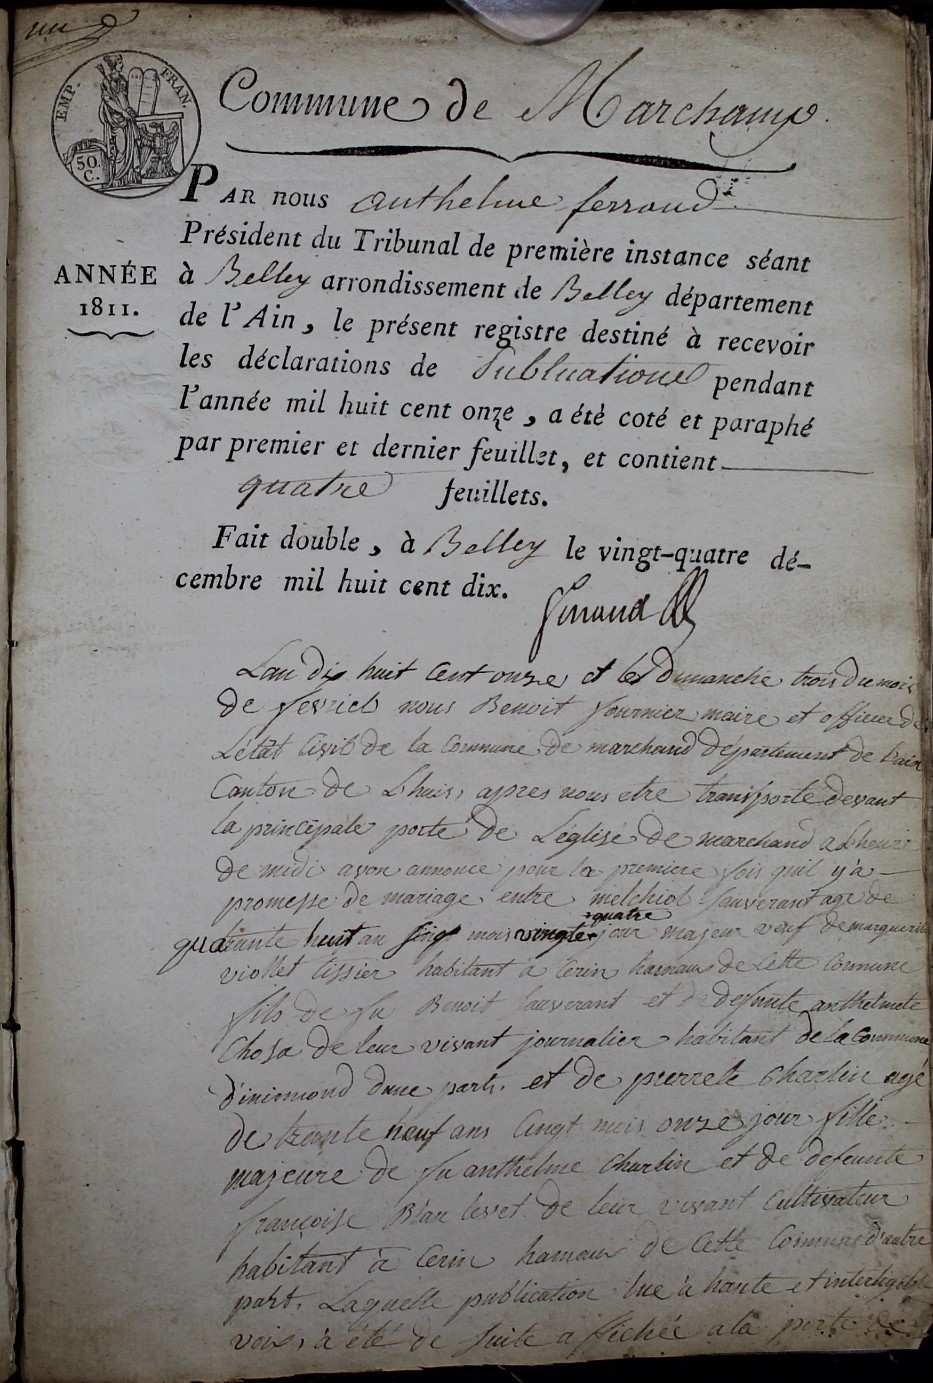 EMP. FRAN.
50 C.
Commune de Marchamp
PAR nous anthelme ferrand
Président du Tribunal de première instance séant
ANNÉE
1811.
à Belley arrondissement de Belley département
de l'Ain, le présent registre destiné à recevoir
les déclarations de Publications pendant
l'année mil huit cent onze, a été coté et paraphé
par premier et dernier feuillet, et contient
quatre feuillets.
Fait double, à Belley le vingt-quatre dé-
cembre mil huit cent dix.
Lan dix huit cent onze et le Dimanche trois du mois
de fevrier nous Benoit fournier maire et officier de
Letat Civil de la Commune de marchand departement de Lain
Canton de Lhuis, apres nous etre transporte devant
la principale porte de Leglise de marchand a Lheure
de midi avon annonce pour la premiere fois quil y'a
promesse de mariage entre melchiol sauverant age de
quatre
quarante huit an sing mois vingt jour majeur veuf de marguerite
viollet tissier habitant à Cerin hameau de Cette Commune
fils de fu Benoit sauverant et de defunte anthelmete
Chosa de leur vivant journalier habitant de la Commune
d'inimond dune part. et de pierrete Charlin agé
de trente neuf ans Cingt mois onze jour fille
majeure de fu anthelme Charlin et de defeunte
françoise Blan levet de leur vivant Cultivateur
habitant à Cerin hameau de Cette Commune d'autre
part. Laquelle publication lue à haute et interligible
voix, à été de suite affichée a la porte de